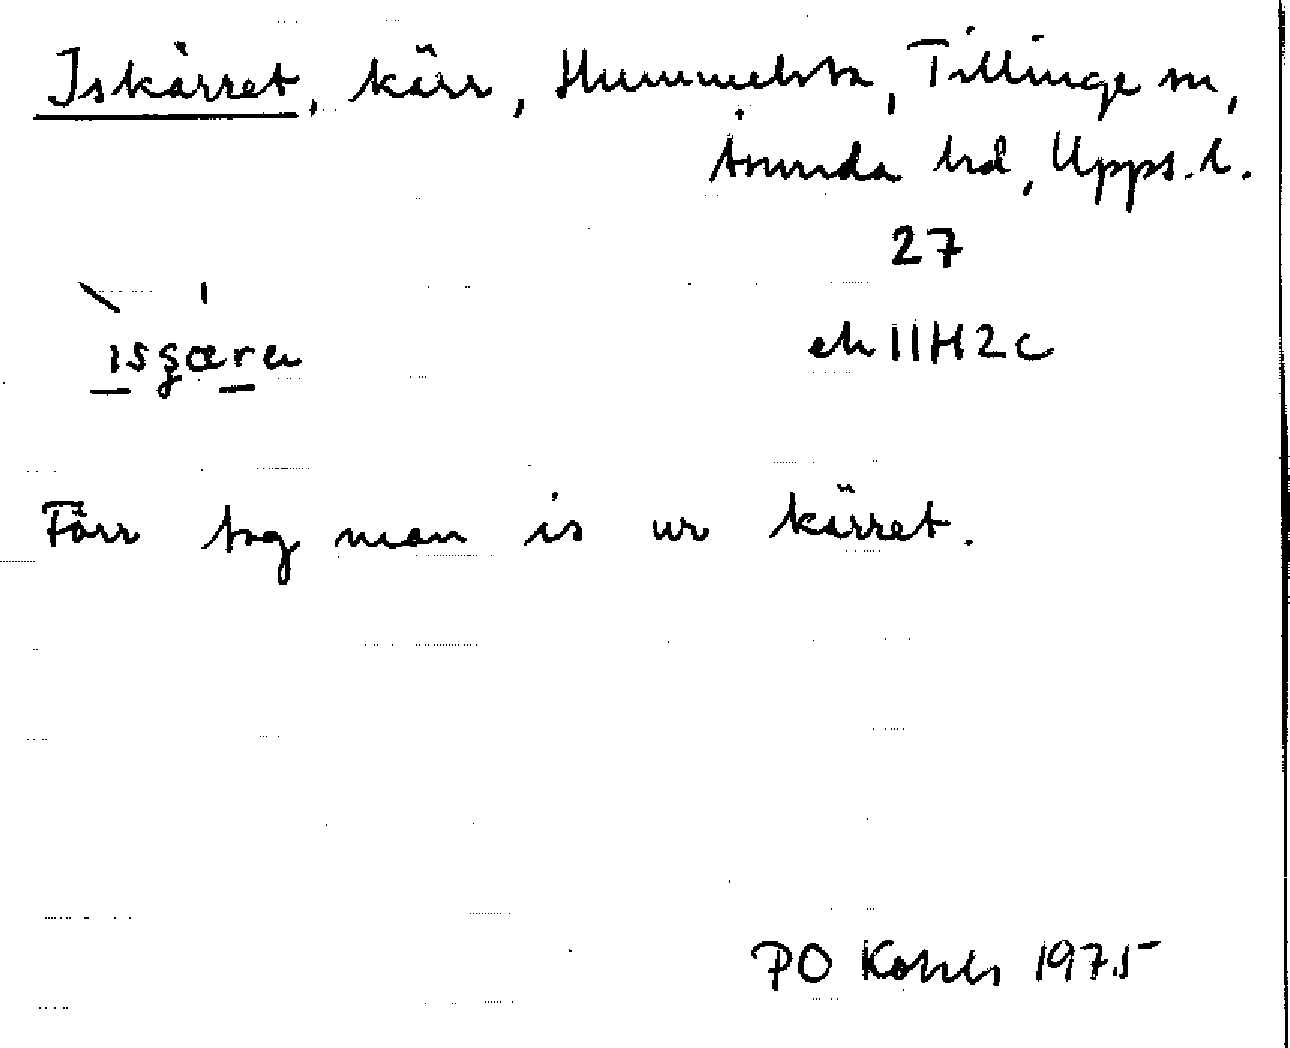 Iskärret, kärr, Hummelsta, Tillinge sn,
Åsunda hd, Upps. l.
27
ek 11H2c
Förr tog man is ur kärret.
PO 1975